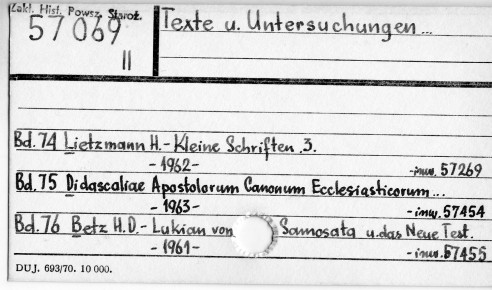 Zakl. Hist. Powsz. Staroż.
57069
II
Texte u. Untersuchungen...
Bd. 74 Lietzmann H. - Kleine Schriften .3.
- 1962 -
-inw. 57269
Bd. 75 Didascaliae Apostolorum Canonum Ecclesiasticorum...
- 1963 -
-inw. 57454
Bd. 76 Betz H.D. - Lukian von Samosata u. das Neue Test.
- 1961 -
-inw. 57455
DUJ. 693/70. 10 000.